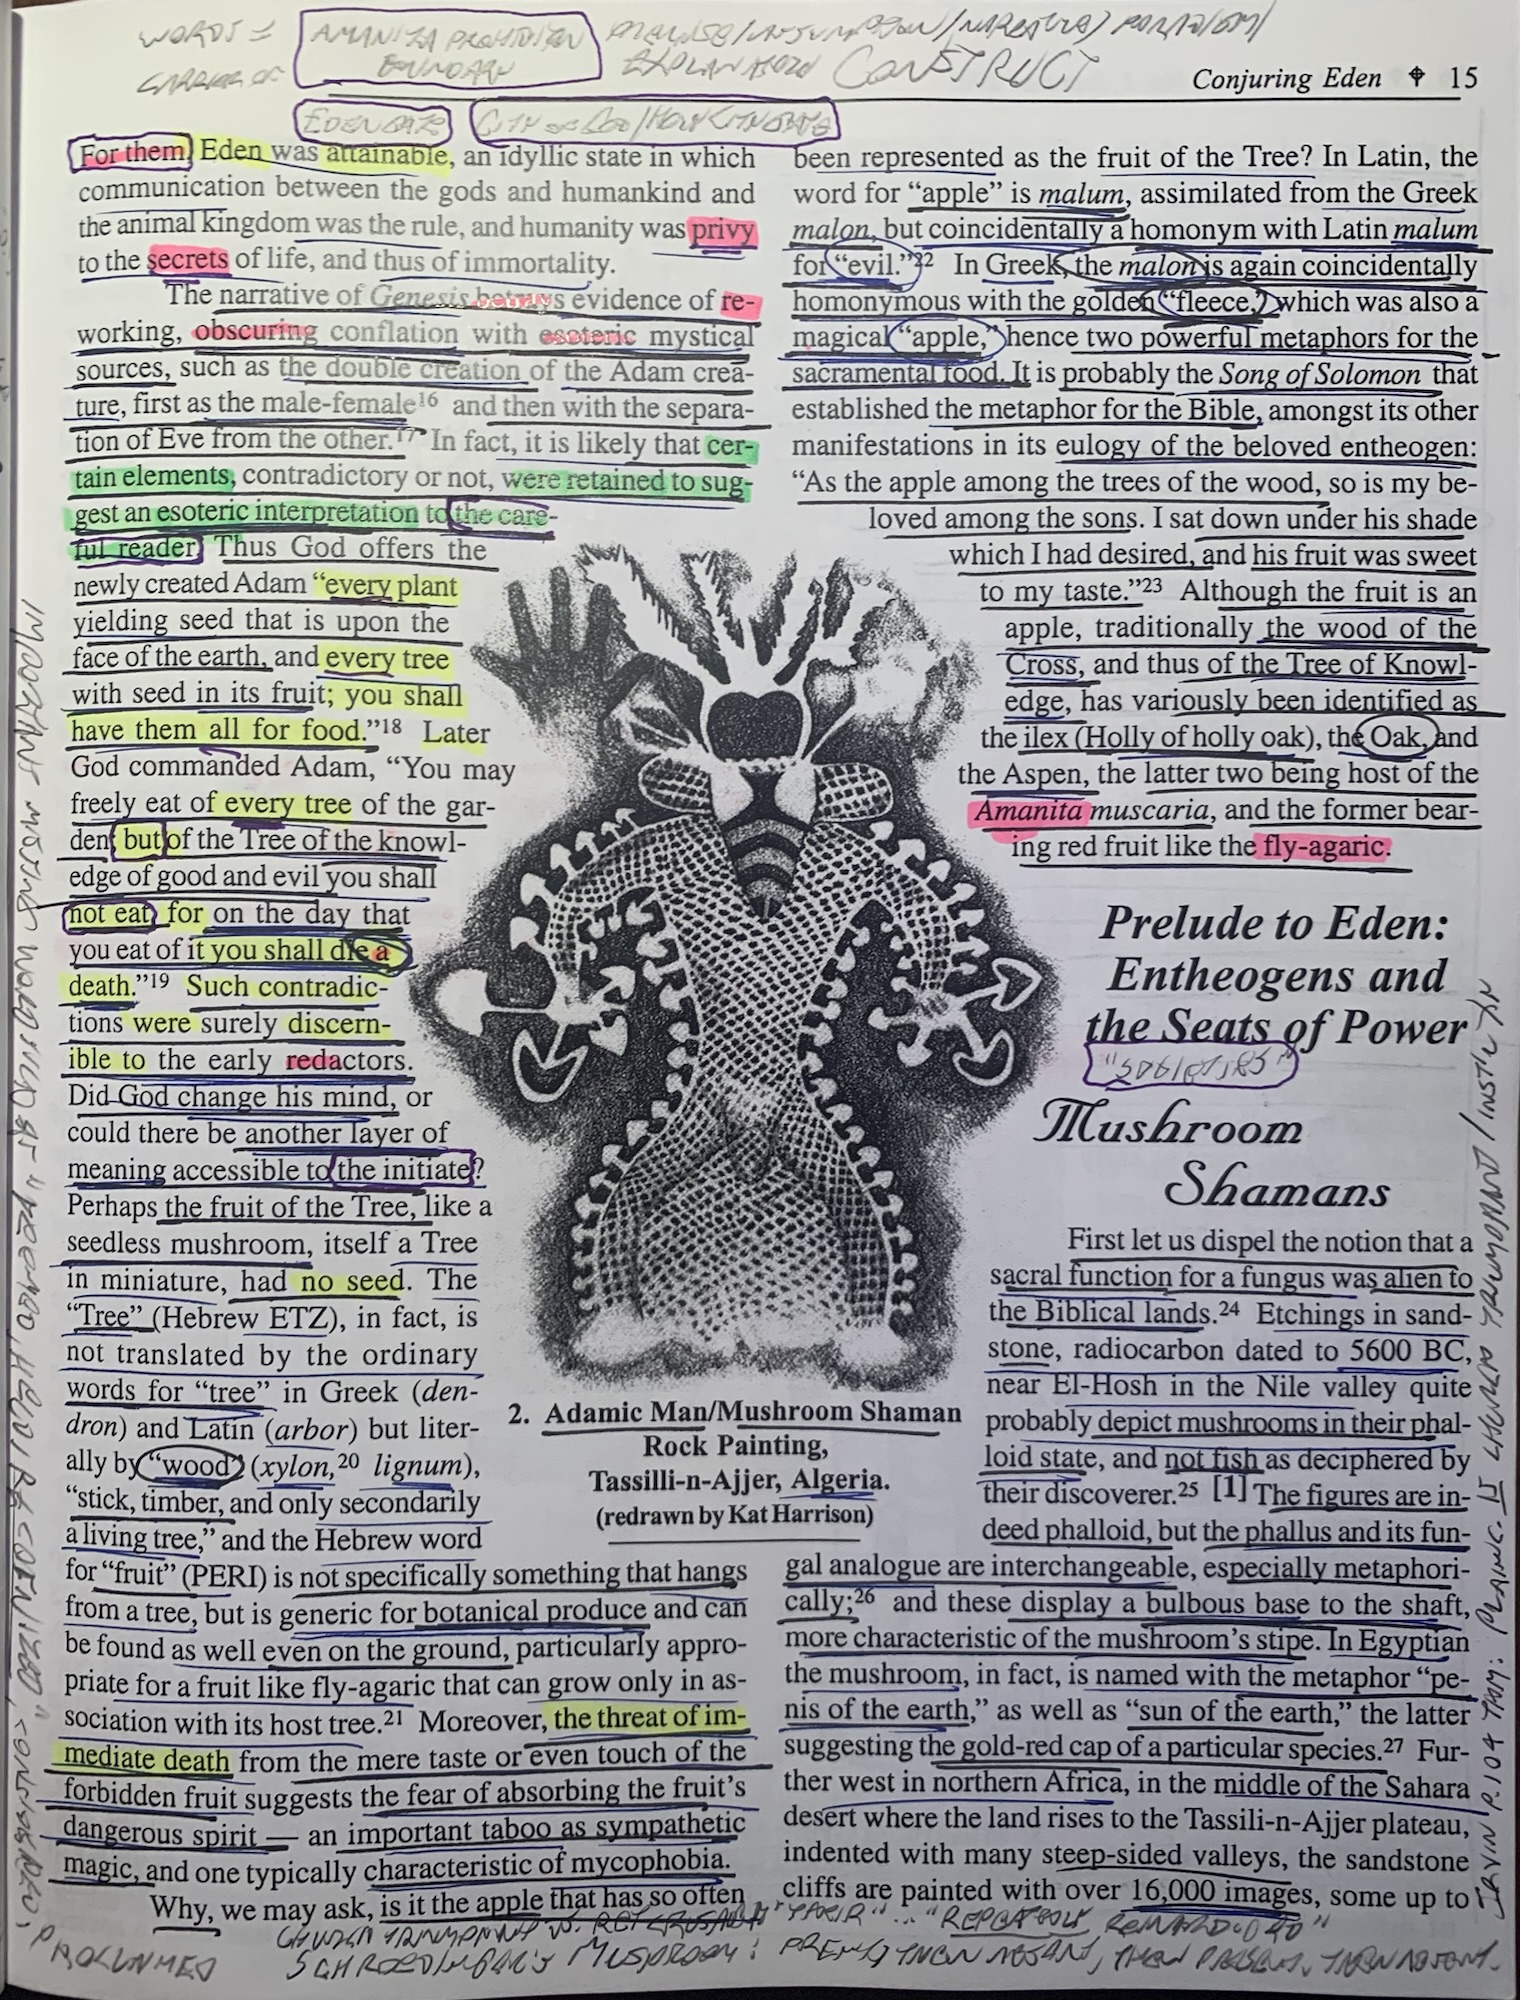 WORDS =
CARRIER OF
AMANITA PROHIBITION
BOUNDARY
EXPLANATION CONSTRUCT
Conjuring Eden ✦ 15
EDEN GATE
For them, Eden was attainable, an idyllic state in which
communication between the gods and humankind and
the animal kingdom was the rule, and humanity was privy
to the secrets of life, and thus of immortality.
The narrative of Genesis betrays evidence of re-
working, obscuring conflation with esoteric mystical
sources, such as the double creation of the Adam crea-
ture, first as the male-female16 and then with the separa-
tion of Eve from the other.17 In fact, it is likely that cer-
tain elements, contradictory or not, were retained to sug-
gest an esoteric interpretation to the care-
ful reader. Thus God offers the
newly created Adam “every plant
yielding seed that is upon the
face of the earth, and every tree
with seed in its fruit; you shall
have them all for food.”18 Later
God commanded Adam, “You may
freely eat of every tree of the gar-
den, but of the Tree of the knowl-
edge of good and evil you shall
not eat, for on the day that
you eat of it you shall die a
death.”19 Such contradic-
tions were surely discern-
ible to the early redactors.
Did God change his mind, or
could there be another layer of
meaning accessible to the initiate?
Perhaps the fruit of the Tree, like a
seedless mushroom, itself a Tree
in miniature, had no seed. The
“Tree” (Hebrew ETZ), in fact, is
not translated by the ordinary
words for “tree” in Greek (den-
dron) and Latin (arbor) but liter-
ally by “wood” (xylon,20 lignum),
“stick, timber, and only secondarily
a living tree,” and the Hebrew word
for “fruit” (PERI) is not specifically something that hangs
from a tree, but is generic for botanical produce and can
be found as well even on the ground, particularly appro-
priate for a fruit like fly-agaric that can grow only in as-
sociation with its host tree.21 Moreover, the threat of im-
mediate death from the mere taste or even touch of the
forbidden fruit suggests the fear of absorbing the fruit’s
dangerous spirit — an important taboo as sympathetic
magic, and one typically characteristic of mycophobia.
Why, we may ask, is it the apple that has so often
2. Adamic Man/Mushroom Shaman
Rock Painting,
Tassilli-n-Ajjer, Algeria.
(redrawn by Kat Harrison)
been represented as the fruit of the Tree? In Latin, the
word for “apple” is malum, assimilated from the Greek
malon, but coincidentally a homonym with Latin malum
for “evil.”22 In Greek, the malon is again coincidentally
homonymous with the golden “fleece,” which was also a
magical “apple,” hence two powerful metaphors for the
sacramental food. It is probably the Song of Solomon that
established the metaphor for the Bible, amongst its other
manifestations in its eulogy of the beloved entheogen:
“As the apple among the trees of the wood, so is my be-
loved among the sons. I sat down under his shade
which I had desired, and his fruit was sweet
to my taste.”23 Although the fruit is an
apple, traditionally the wood of the
Cross, and thus of the Tree of Knowl-
edge, has variously been identified as
the ilex (Holly of holly oak), the Oak, and
the Aspen, the latter two being host of the
Amanita muscaria, and the former bear-
ing red fruit like the fly-agaric.
Prelude to Eden:
Entheogens and
the Seats of Power
Mushroom
Shamans
First let us dispel the notion that a
sacral function for a fungus was alien to
the Biblical lands.24 Etchings in sand-
stone, radiocarbon dated to 5600 BC,
near El-Hosh in the Nile valley quite
probably depict mushrooms in their phal-
loid state, and not fish as deciphered by
their discoverer.25 [1] The figures are in-
deed phalloid, but the phallus and its fun-
gal analogue are interchangeable, especially metaphori-
cally;26 and these display a bulbous base to the shaft,
more characteristic of the mushroom’s stipe. In Egyptian
the mushroom, in fact, is named with the metaphor “pe-
nis of the earth,” as well as “sun of the earth,” the latter
suggesting the gold-red cap of a particular species.27 Fur-
ther west in northern Africa, in the middle of the Sahara
desert where the land rises to the Tassili-n-Ajjer plateau,
indented with many steep-sided valleys, the sandstone
cliffs are painted with over 16,000 images, some up to
SCHROEDINGER'S MUSHROOM: THEN ABSENT, THEN PRESENT, THEN ABSENT.
PROCLAIMED